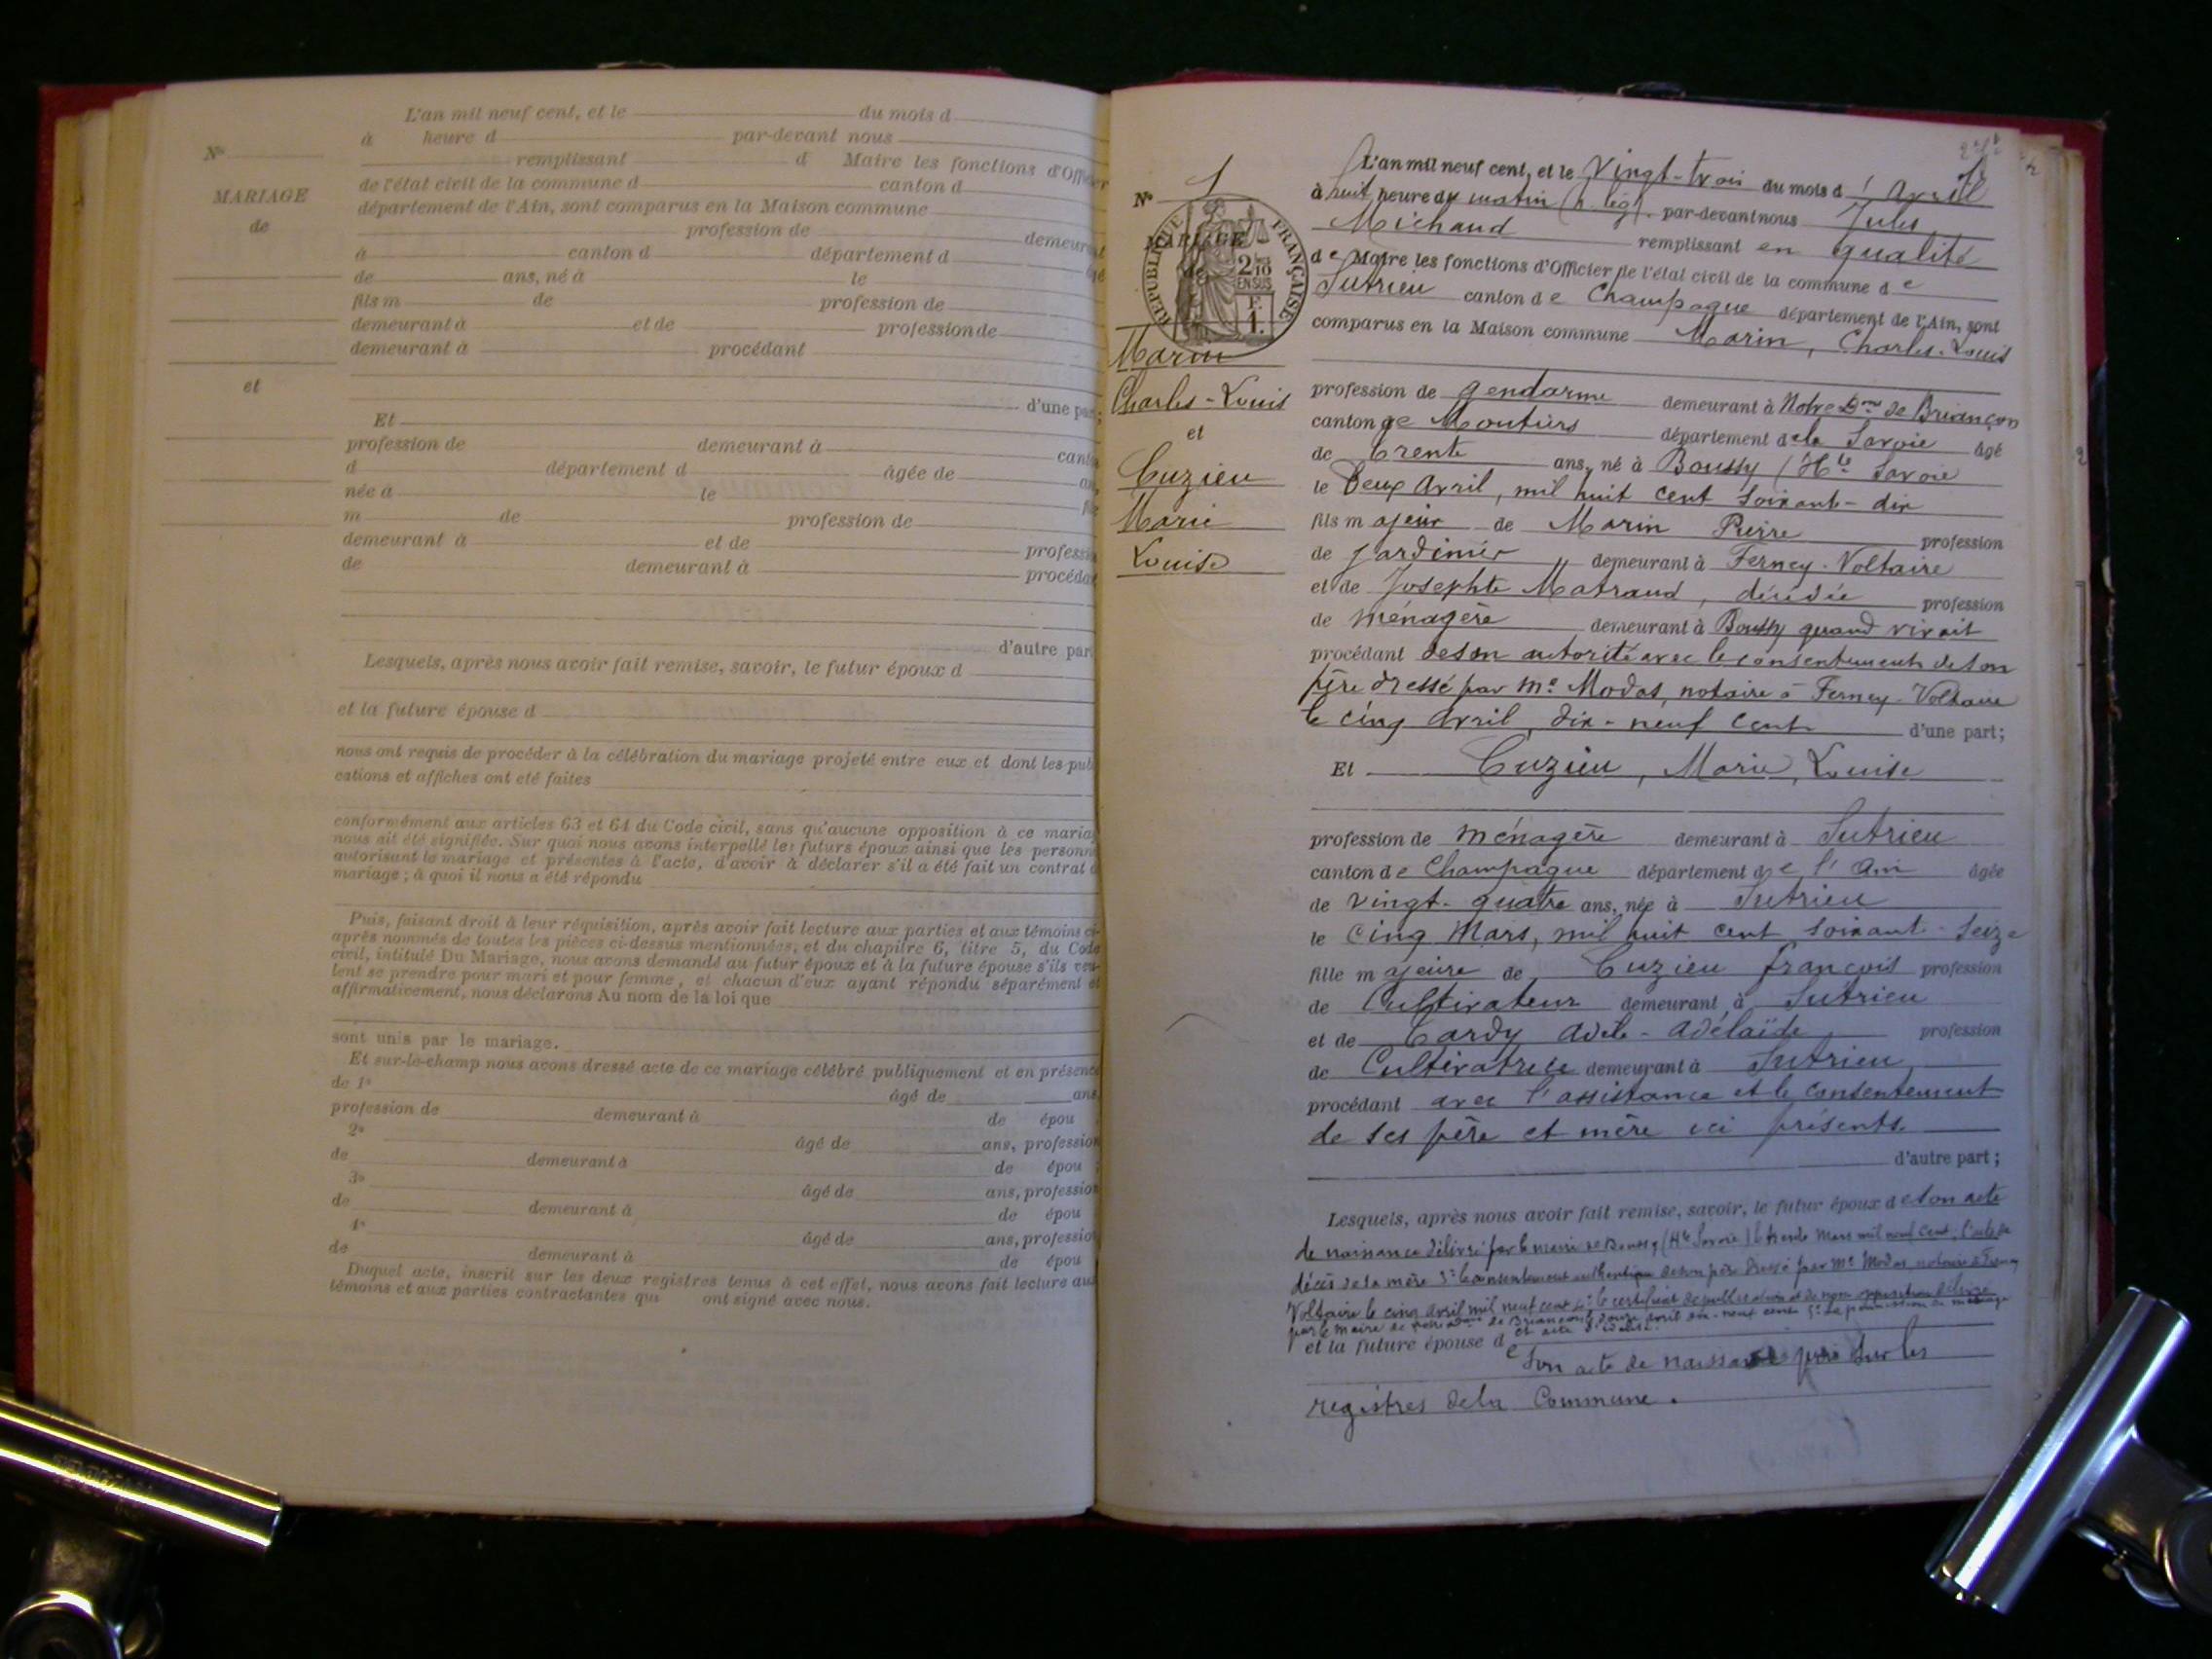 L'an mil neuf cent, et le du mois d
à heure d par-devant nous
remplissant d Maire les fonctions d'Officier
de l'état civil de la commune d canton d
département de l'Ain, sont comparus en la Maison commune
profession de demeurant
à canton d département d âgé
de ans, né à le
fils m de profession de
demeurant à et de profession de
demeurant à procédant
d'une part;
Et
profession de demeurant à canton
d département d âgée de ans,
née à le fille
m de profession de
demeurant à et de profession
de demeurant à procédant
d'autre part
Lesquels, après nous avoir fait remise, savoir, le futur époux d
et la future épouse d
nous ont requis de procéder à la célébration du mariage projeté entre eux et dont les publi
cations et affiches ont été faites
conformément aux articles 63 et 64 du Code civil, sans qu'aucune opposition à ce mariage
nous ait été signifiée. Sur quoi nous avons interpellé les futurs époux ainsi que les personnes
autorisant le mariage et présentes à l'acte, d'avoir à déclarer s'il a été fait un contrat de
mariage; à quoi il nous a été répondu
Puis, faisant droit à leur réquisition, après avoir fait lecture aux parties et aux témoins ci-
après nommés de toutes les pièces ci-dessus mentionnées, et du chapitre 6, titre 5, du Code
civil, intitulé Du Mariage, nous avons demandé au futur époux et à la future épouse s'ils veu-
lent se prendre pour mari et pour femme, et chacun d'eux ayant répondu séparément et
affirmativement, nous déclarons Au nom de la loi que
sont unis par le mariage.
Et sur-le-champ nous avons dressé acte de ce mariage célébré publiquement et en présence
de 1° âgé de ans,
profession de demeurant à de épou ;
2° âgé de ans, profession
de demeurant à de épou ;
3° âgé de ans, profession
de demeurant à de épou
4° âgé de ans, profession
de demeurant à de épou
Duquel acte, inscrit sur les deux registres tenus à cet effet, nous avons fait lecture aux
témoins et aux parties contractantes qui ont signé avec nous.
N°
MARIAGE
de
et
N° 1
MARIAGE
de
RÉPUBLIQUE FRANÇAISE
2/10
EN SUS
F.
1.
Marin
Charles-Louis
et
Cuzieu
Marie
Louise
L'an mil neuf cent, et le vingt-trois du mois d'avril
à huit heure du matin (h. lég). par-devant nous Jules
Michaud remplissant en qualité
de Maire les fonctions d'Officier de l'état civil de la commune de
Sutrieu canton de Champagne département de l'Ain, sont
comparus en la Maison commune Marin, Charles-Louis
profession de gendarme demeurant à Notre Dme de Briançon
canton de Moutiers département de la Savoie âgé
de trente ans, né à Boussy (Hte Savoie
le deux avril, mil huit cent soixante-dix
fils majeur de Marin Pierre profession
de jardinier demeurant à Ferney-Voltaire
et de Josephte Matraud, décédée profession
de ménagère demeurant à Boussy quand vivait
procédant de son autorité avec le consentement de son
père dressé par Me Modas, notaire à Ferney-Voltaire
le cinq avril, dix-neuf cent d'une part;
Et Cuzieu, Marie, Louise
profession de ménagère demeurant à Sutrieu
canton de Champagne département de l'Ain âgée
de vingt-quatre ans, née à Sutrieu
le cinq Mars, mil huit cent soixante-seize
fille majeure de Cuzieu françois profession
de Cultivateur demeurant à Sutrieu
et de Cardy Adèle-Adélaïde profession
de Cultivatrice demeurant à Sutrieu
procédant avec l'assistance et le consentement
de ses père et mère ici présents
d'autre part;
Lesquels, après nous avoir fait remise, savoir, le futur époux de son acte
de naissance délivré par le maire de Boussy (Hte Savoie) le trente Mars mil neuf cent, l'acte de
décès de la mère 3° le consentement authentique de son père dressé par Me Modas notaire à Ferney
Voltaire le cinq avril mil neuf cent 4° le certificat de publication et de non opposition délivré
par le maire de Notre Dame de Briançon le douze avril dix-neuf cent 5° la permission de mariage
et la future épouse de
son acte de naissance pris sur les
registres de la Commune.